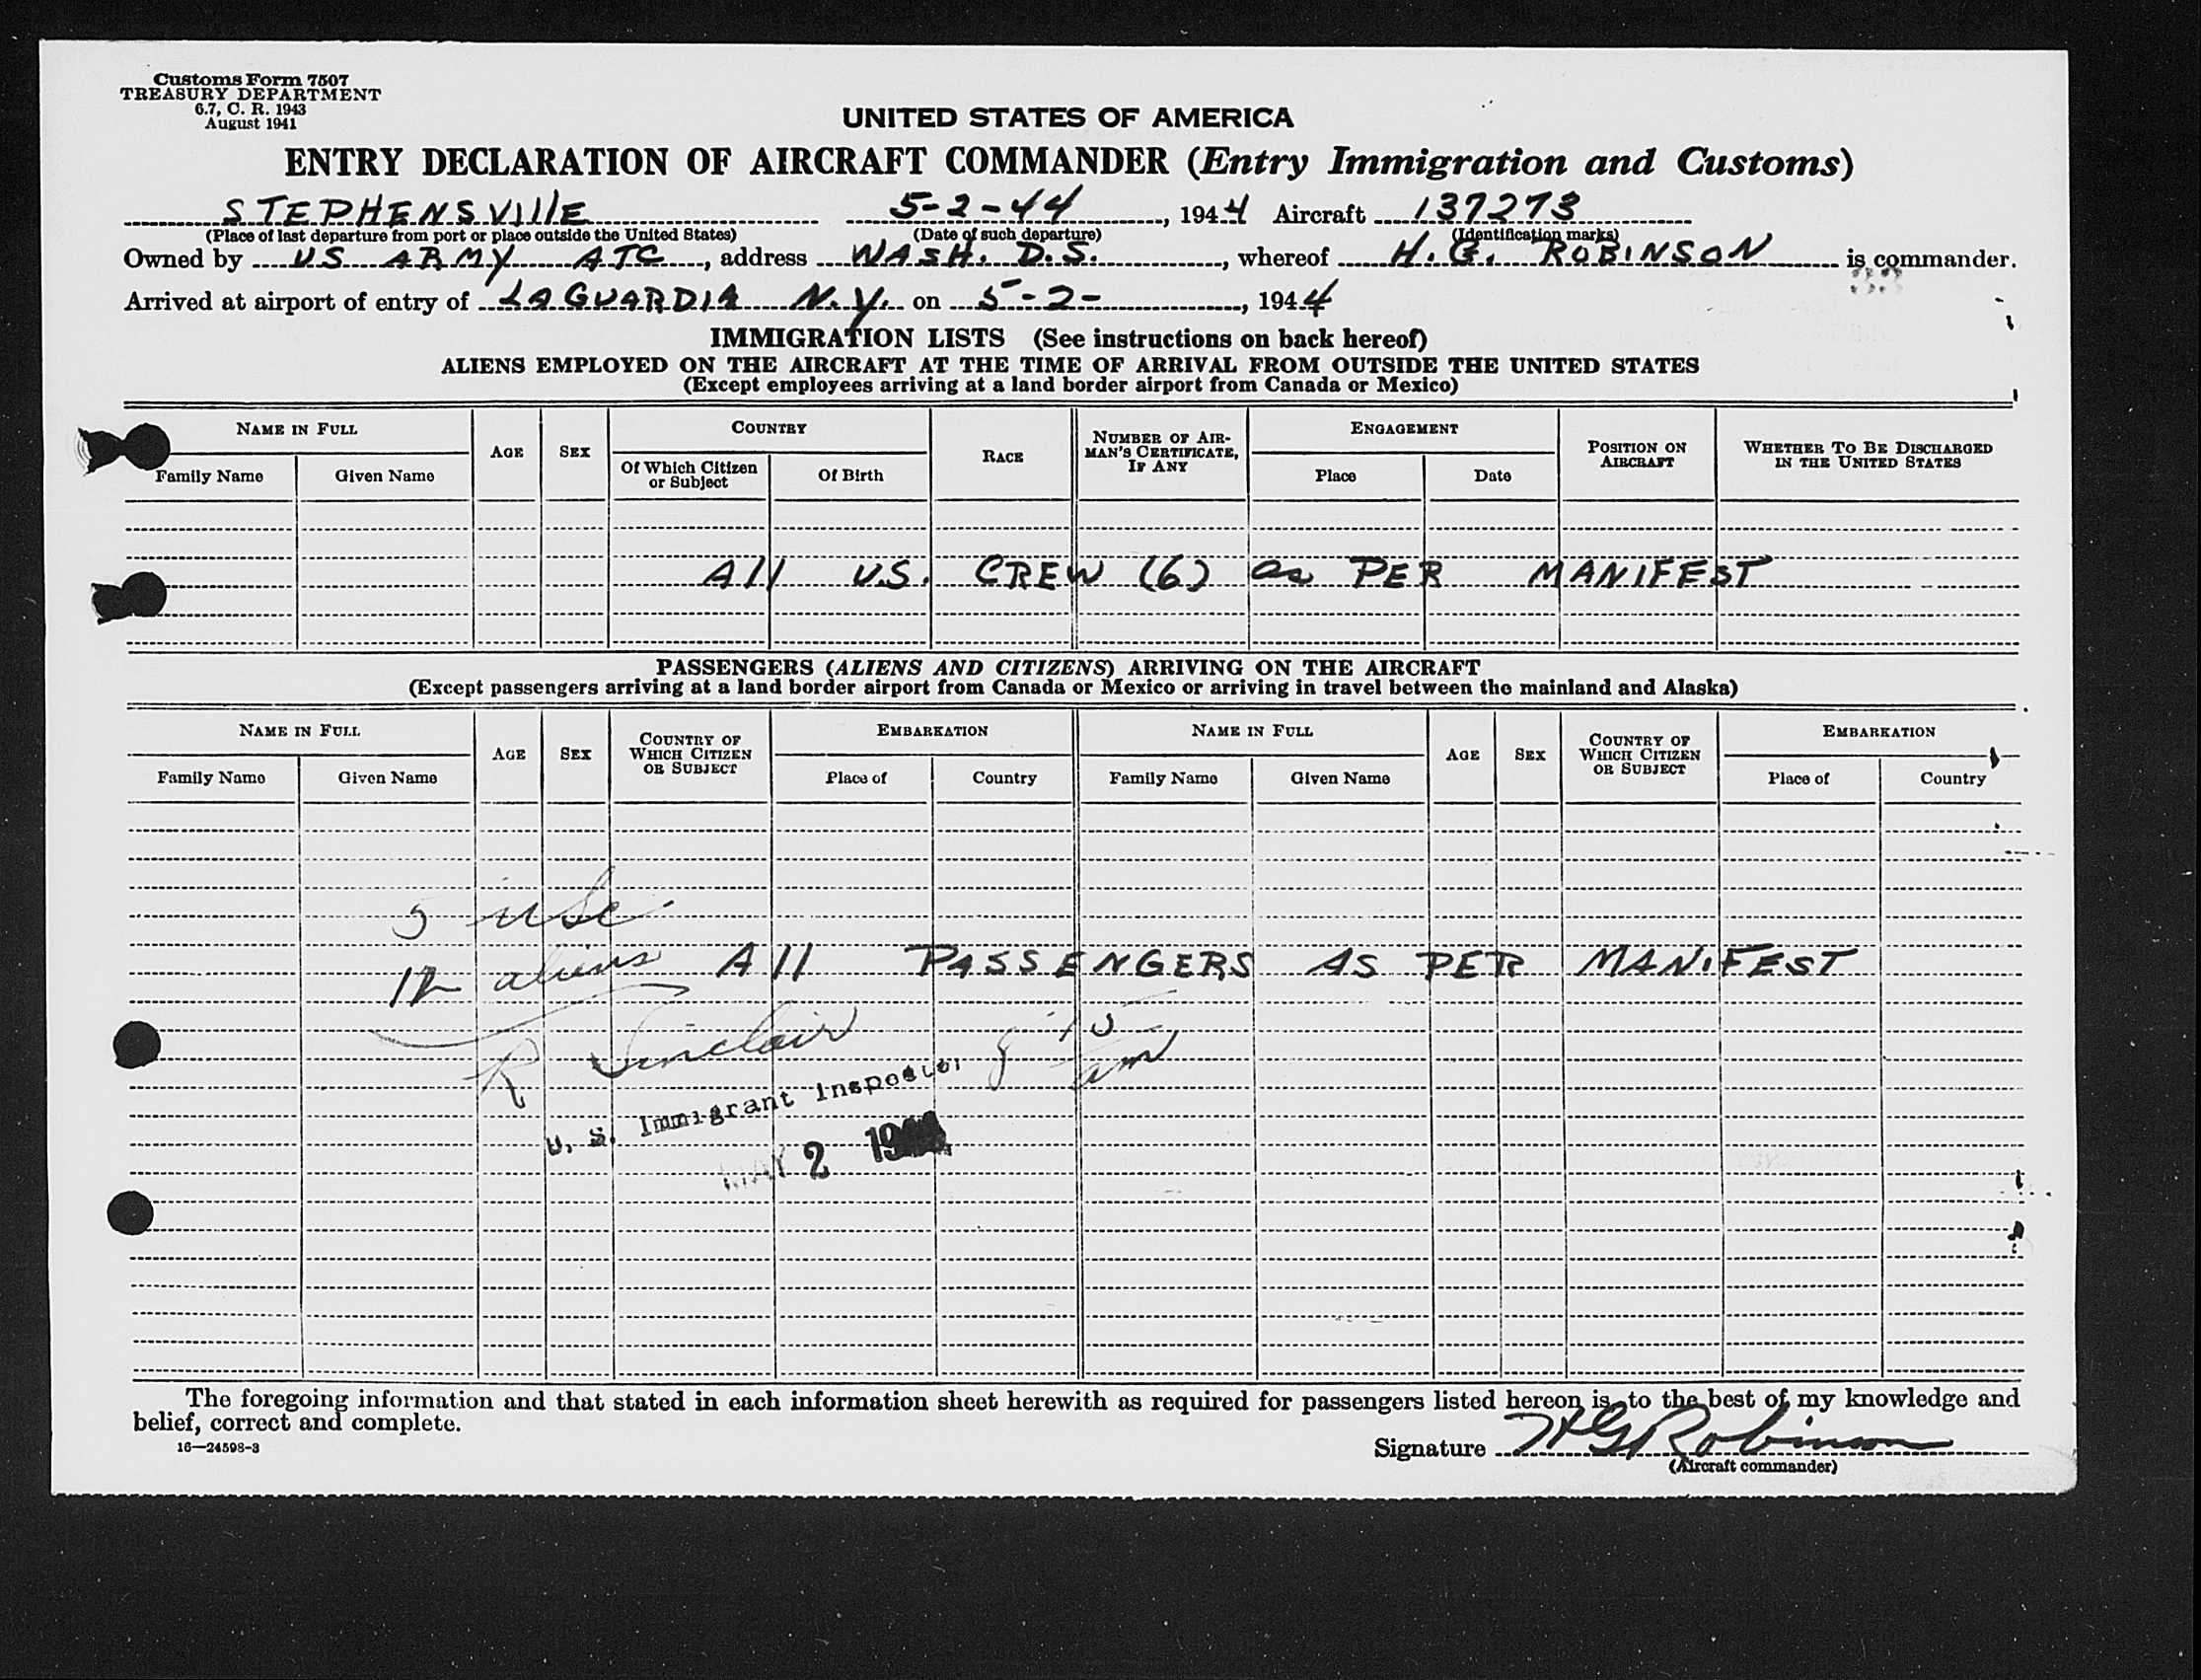 Customs Form 7507
TREASURY DEPARTMENT
6.7, C. R. 1943
August 1941
UNITED STATES OF AMERICA
ENTRY DECLARATION OF AIRCRAFT COMMANDER (Entry Immigration and Customs)
STEPHENSVIllE 5-2-44, 1944 Aircraft 137273
(Place of last departure from port or place outside the United States) (Date of such departure) (Identification marks)
Owned by US ARMY ATC, address WASH. D.S., whereof H. G. ROBINSON is commander.
Arrived at airport of entry of LAGUARDIA N.Y. on 5-2-, 1944
IMMIGRATION LISTS (See instructions on back hereof)
ALIENS EMPLOYED ON THE AIRCRAFT AT THE TIME OF ARRIVAL FROM OUTSIDE THE UNITED STATES
(Except employees arriving at a land border airport from Canada or Mexico)
NAME IN FULL AGE SEX COUNTRY RACE NUMBER OF AIR-MAN'S CERTIFICATE, IF ANY ENGAGEMENT POSITION ON AIRCRAFT WHETHER TO BE DISCHARGED IN THE UNITED STATES
Family Name Given Name Of Which Citizen or Subject Of Birth Place Date
All U.S. CREW (6) as PER MANIFEST
PASSENGERS (ALIENS AND CITIZENS) ARRIVING ON THE AIRCRAFT
(Except passengers arriving at a land border airport from Canada or Mexico or arriving in travel between the mainland and Alaska)
NAME IN FULL AGE SEX COUNTRY OF WHICH CITIZEN OR SUBJECT EMBARKATION NAME IN FULL AGE SEX COUNTRY OF WHICH CITIZEN OR SUBJECT EMBARKATION
Family Name Given Name Place of Country Family Name Given Name Place of Country
5 usc.
12 aliens All PASSENGERS AS PER MANIFEST
R Sinclair 8 15 am
U. S. Immigrant Inspector
MAY 2 1944
The foregoing information and that stated in each information sheet herewith as required for passengers listed hereon is, to the best of my knowledge and
belief, correct and complete.
16—24598-3
Signature HG Robinson
(Aircraft commander)